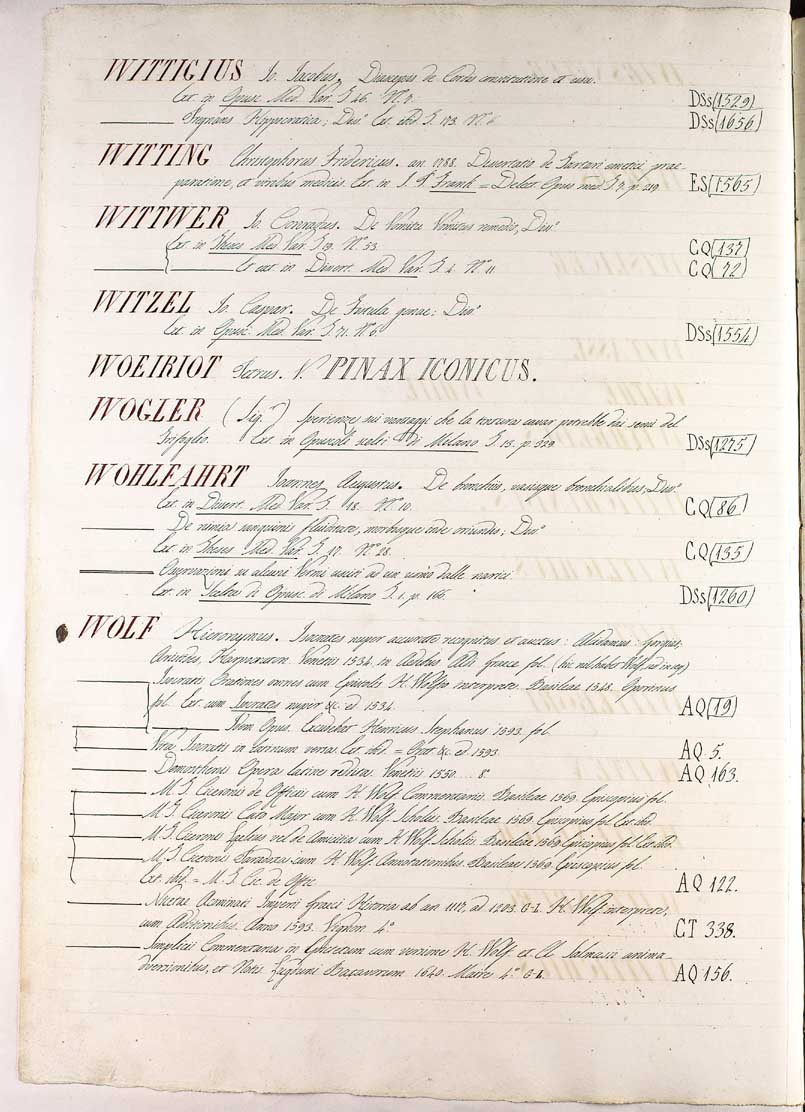 WITTIGIUS Io. Iacobus. de Cortice et usu.
Ext. in Opusc. Med. Var. T. 46. N.° 7. DSs (1529)
Hippocratica; Diss.° Ext. ibid. T. 173. N.° 6. DSs (1656)
WITTING Christophorus Fridericus. an. 1788. Dissertatio de Tartari emetici prae-
paratione, et viribus medicis. Ext. in I. P. Frank = Delect. Opus. med. T. p. 219. ES (1565)
WITTWER Io. Conradus. De Vomitu Vomitus remedio, Diss.°
Ext. in Theses Med. Var. T. 19. N.° 33. CQ (137)
Et ext. in Dissert. Med. Var. T. 4. N.° 11 CQ (72)
WITZEL Io. Caspar. De Ferula; Diss.°
Ext. in Opusc. Med. Var. T. 71. N.° 6. DSs (1554)
WOEIRIOT Petrus. V. PINAX ICONICUS.
WOGLER (Sig.r) Sperienze sui vantaggi che la tessura cavar potrebbe dai semi del
Trifoglio. Ext. in Opuscoli scelti di Milano T. 13. p. 329. DSs (1275)
WOHLFAHRT Ioannes Augustus. De bronchiis, vasisque bronchialibus; Diss.°
Ext. in Dissert. Med. Var. T. 18. N.° 10. CQ (86)
De nimia sanguinis fluiditate, morbisque inde oriundis; Diss.°
Ext. in Theses Med. Var. T. 17. N.° 28. CQ (135)
Osservazioni su alcuni Vermi usciti ad un uomo dalle narici.
Ext. in Scelta di Opusc. di Milano T. 1. p. 166. DSs (1260)
WOLF Hieronymus. Isocrates nuper accurate recognitus et auctus: Alcidamas: Gorgias,
Aristides, Harpocration. Venetiis 1534. in Aedibus Aldi Graece fol. (hic nil habet Wolf.)
Isocratis Orationes omnes cum Epistolis H. Wolfio interprete. Basileae 1548. Oporinus
fol. Ext. cum Isocrates nuper &c. ed. 1534. AQ (19)
Idem Opus. Excudebat Henricus Stephanus 1593. fol.
Vita Isocratis in latinum versa Ext. ibid. = Orat. &c. ed. 1593. AQ 5.
Demosthenis Opera latine reddita. Venetiis. 1550.... 8.° AQ 163.
M. T. Ciceronis de Officiis cum H. Wolf. Commentariis. Basileae 1569. Episcopius fol.
M. T. Ciceronis Cato Major cum H. Wolf. Scholiis. Basileae 1569. Episcopius fol. Ext. ibid.
M. T. Ciceronis Laelius vel de Amicitia cum H. Wolf. Scholiis. Basileae 1569. Episcopius fol. Ext. ibid.
M. T. Ciceronis Paradoxa cum H. Wolf. Annotationibus. Basileae 1569. Episcopius fol.
Ext. ibid. = M. T. Cic. de Offic. AQ 122.
Nicetae Acominati Imperii Graeci Historia ab an. 1117. ad 1203. G-L. H. Wolf. interprete,
cum Additionibus. Anno 1593. Vignon 4.° CT 338.
Simplicii Commentarius in Epictetum cum versione H. Wolf. et Cl. Salmasii animad-
versionibus, et Notis. Lugduni Batavorum 1640. Maire 4.° G-L. AQ 156.